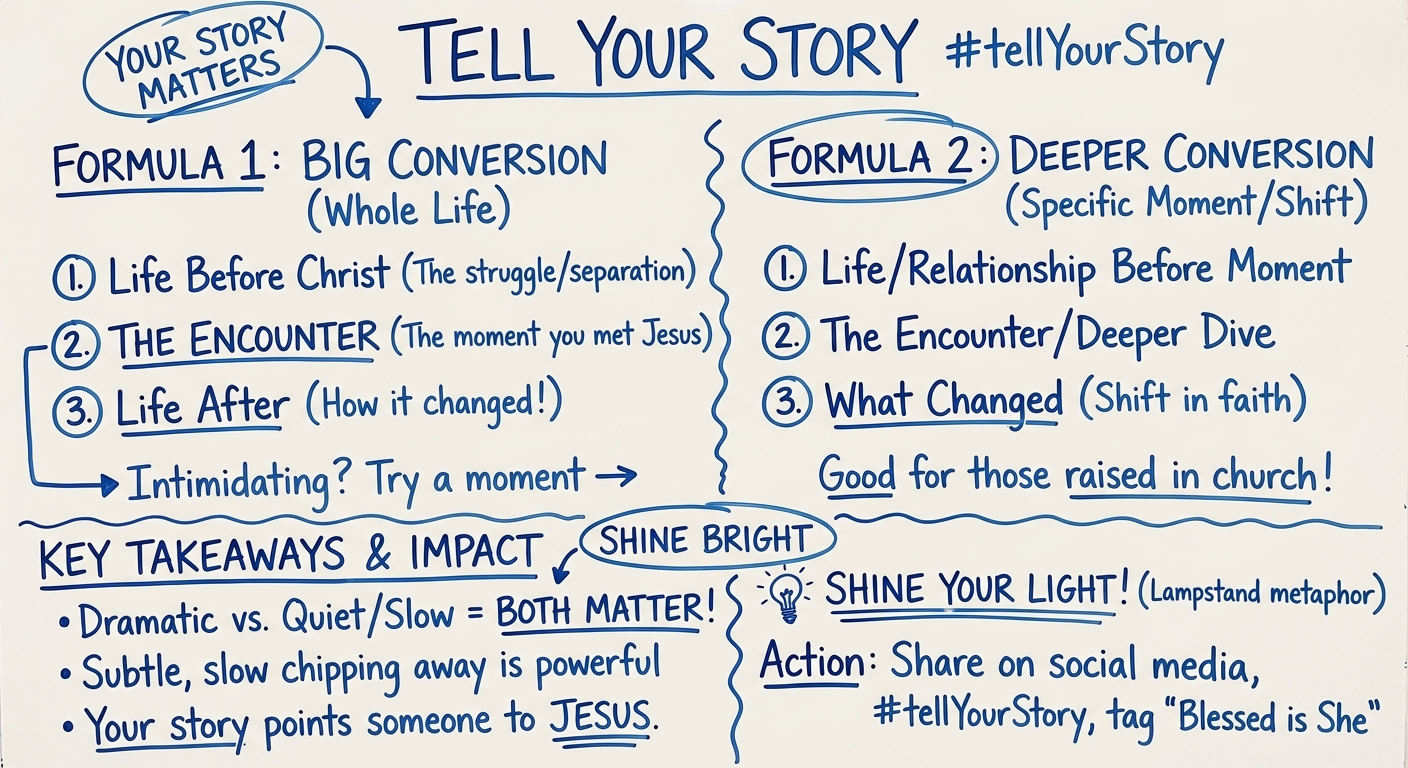 YOUR STORY
MATTERS
TELL YOUR STORY #tellYourStory
FORMULA 1: BIG CONVERSION
(Whole Life)
1. Life Before Christ (The struggle/separation)
2. THE ENCOUNTER (The moment you met Jesus)
3. Life After (How it changed!)
Intimidating? Try a moment →
FORMULA 2: DEEPER CONVERSION
(Specific Moment/Shift)
1. Life/Relationship Before Moment
2. The Encounter/Deeper Dive
3. What Changed (Shift in faith)
Good for those raised in church!
KEY TAKEAWAYS & IMPACT
SHINE BRIGHT
• Dramatic vs. Quiet/Slow = BOTH MATTER!
• Subtle, slow chipping away is powerful
• Your story points someone to JESUS.
SHINE YOUR LIGHT! (Lampstand metaphor)
Action: Share on social media,
#tellYourStory, tag "Blessed is She"